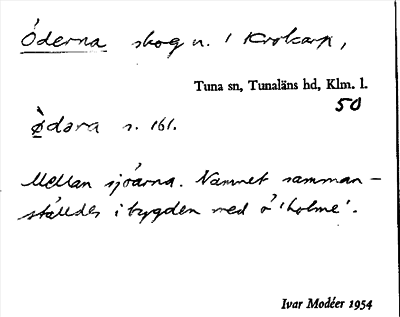 Öderna skog n. i Krokarp,
Tuna sn, Tunaläns hd, Klm. l.
50
ø̀dəra s. 161.
Mellan sjöarna. Namnet samman-
ställdes i bygden med ö 'holme'.
Ivar Modéer 1954